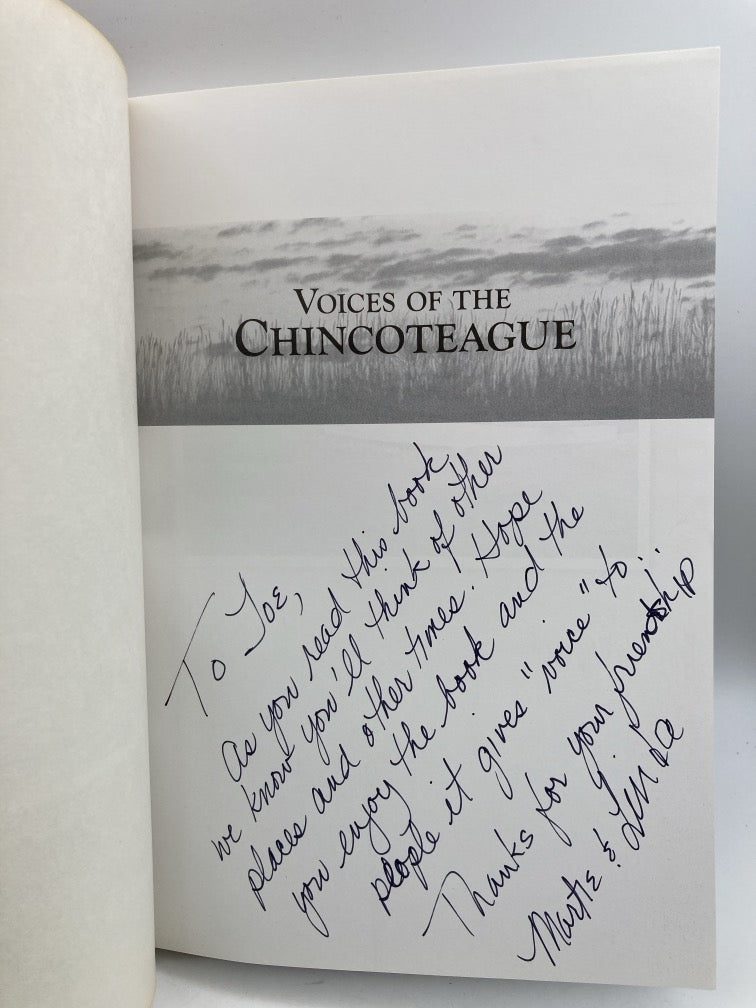 VOICES OF THE
CHINCOTEAGUE
To Joe,
As you read this book
we know you'll think of other
places and other times. Hope
you enjoy the book and the
people it gives "voice" to..
Thanks for your friendship
Martie & Linda